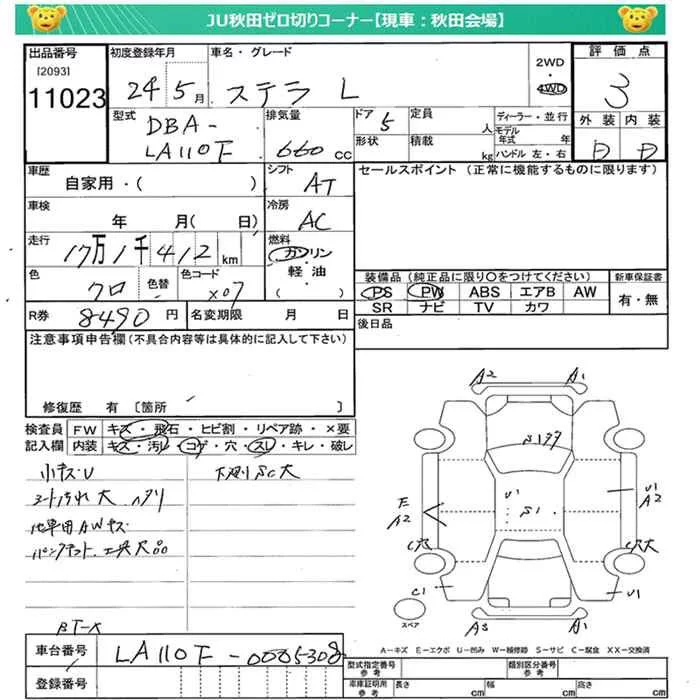 JU秋田ゼロ切りコーナー【現車：秋田会場】
出品番号
[2093]
11023
初度登録年月
24 5月
車名・グレード
ステラ L
2WD
・
4WD
評価点
3
外装 内装
D D
型式
DBA-
LA110F
排気量
660 cc
ドア
5
定員
人
形状
積載
kg
ディーラー・並行
モデル年式
年
ハンドル 左・右
車歴
自家用・( )
シフト
AT
車検
年 月( 日)
冷房
AC
走行
17万1千412 km
燃料
ガソリン
軽油
( )
色
クロ
色替
色コード
X07
R券
8490 円
名変期限
月 日
セールスポイント (正常に機能するものに限ります)
装備品 (純正品に限り○をつけてください)
PS PW ABS エアB AW
SR ナビ TV カワ
新車保証書
有・無
後日品
注意事項申告欄(不具合内容等は具体的に記入して下さい)
修復歴 有 〔箇所 〕
検査員
記入欄
FW キズ・飛石・ヒビ割・リペア跡・×要
内装 キズ・汚レ・コゲ・穴・スレ・キレ・破レ
小キズ・U
シート汚れ 大 ヘタリ
下廻り SC大
他車用AWキズ
パンクキット、工具欠品
A2
A1
U1
S1
U1
A2
E
A2
C穴
C穴大
C1
U1
スペア
A3
A1
A-キズ E-エクボ U-凹み W-補修跡 S-サビ C-腐食 XX-交換済
車台番号
LA110F-0005308
登録番号
型式指定番号
参考
類別区分番号
参考
車庫証明用
参考
長さ
cm
幅
cm
高さ
cm